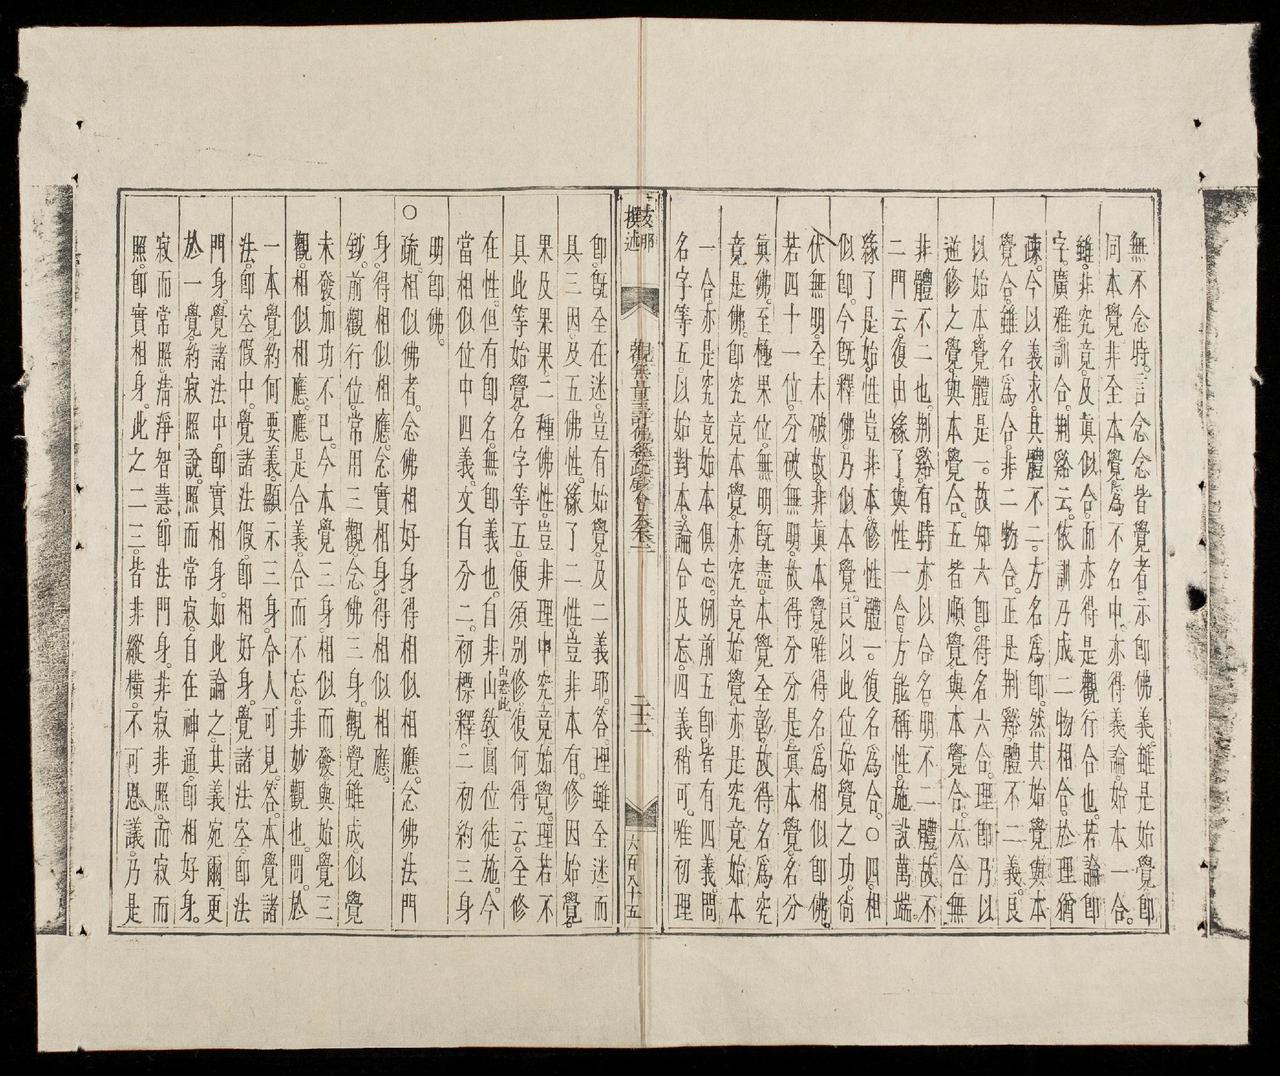 無不念時。言念念皆覺者。示即佛義。雖是始覺即
同本覺。非全本覺。為不名中。亦得義論。始本一合。
雖非究竟及真似合。而亦得是觀行合也。若論即
字。廣雅訓合。荆谿云。依訓乃成二物相合。於理猶
疎。今以義求。其體不二。方名爲即。然其始覺與本
覺合。雖名爲合。非二物合。正是荆谿體不二義。良
以始本覺體是一。故知六即得名六合。理即乃以
逆修之覺與本覺合。五皆順覺與本覺合。六合無
非體不二也。荆谿有時亦以合名。明不二體。故不
二門云。復由緣了。與性一合。方能稱性。施設萬端。
緣了是始。性豈非本。修性體一。復名爲合。○四相
似即。今既釋佛。乃似本覺。良以此位。始覺之功。尚
伏無明。全未破故。非眞本覺。唯得名爲相似即佛。
若四十一位。分破無明。故得分分是眞本覺。名分
眞佛。至極果位。無明既盡。本覺全彰。故得名爲究
竟是佛。即究竟本覺。亦究竟始覺。亦是究竟始本
一合。亦是究竟始本俱忘。例前五即。皆有四義。問
名字等五。以始對本。論合及忘。四義稍可。唯初理
支那
撰述
觀無量壽佛經疏鈔會本卷二
二十二
六百八十五
即。既全在迷。豈有始覺及二義耶。答。理雖全迷。而
具三因。及五佛性。緣了二性。豈非本有。修因始覺。
果及果果二種佛性。豈非理中究竟始覺。理若不
具此等始覺。名字等五。便須別修。復何得云。全修
在性。但有即名。無即義也。自非山敎。出荆此圓位徒施。今
當相似位中四義。文自分二。初標釋。二初約三身
明即佛。
○疏。相似佛者。念佛相好身。得相似相應。念佛法門
身。得相似相應。念實相身。得相似相應。
鈔。前觀行位。常用三觀。念佛三身。觀覺雖成。似覺
未發。加功不已。今本覺三身。相似而發。與始覺三
觀。相似相應。應是合義。合而不忘。非妙觀也。問。於
一本覺。約何要義。顯示三身。令人可見。答。本覺諸
法。即空假中。覺諸法假。即相好身。覺諸法空。即法
門身。覺諸法中。即實相身。如此論之。其義宛爾。更
於一覺。約寂照說。照而常寂。自在神通。即相好身。
寂而常照。淸淨智慧。即法門身。非寂非照。而寂而
照。即實相身。此之二三。皆非縱橫。不可思議。乃是